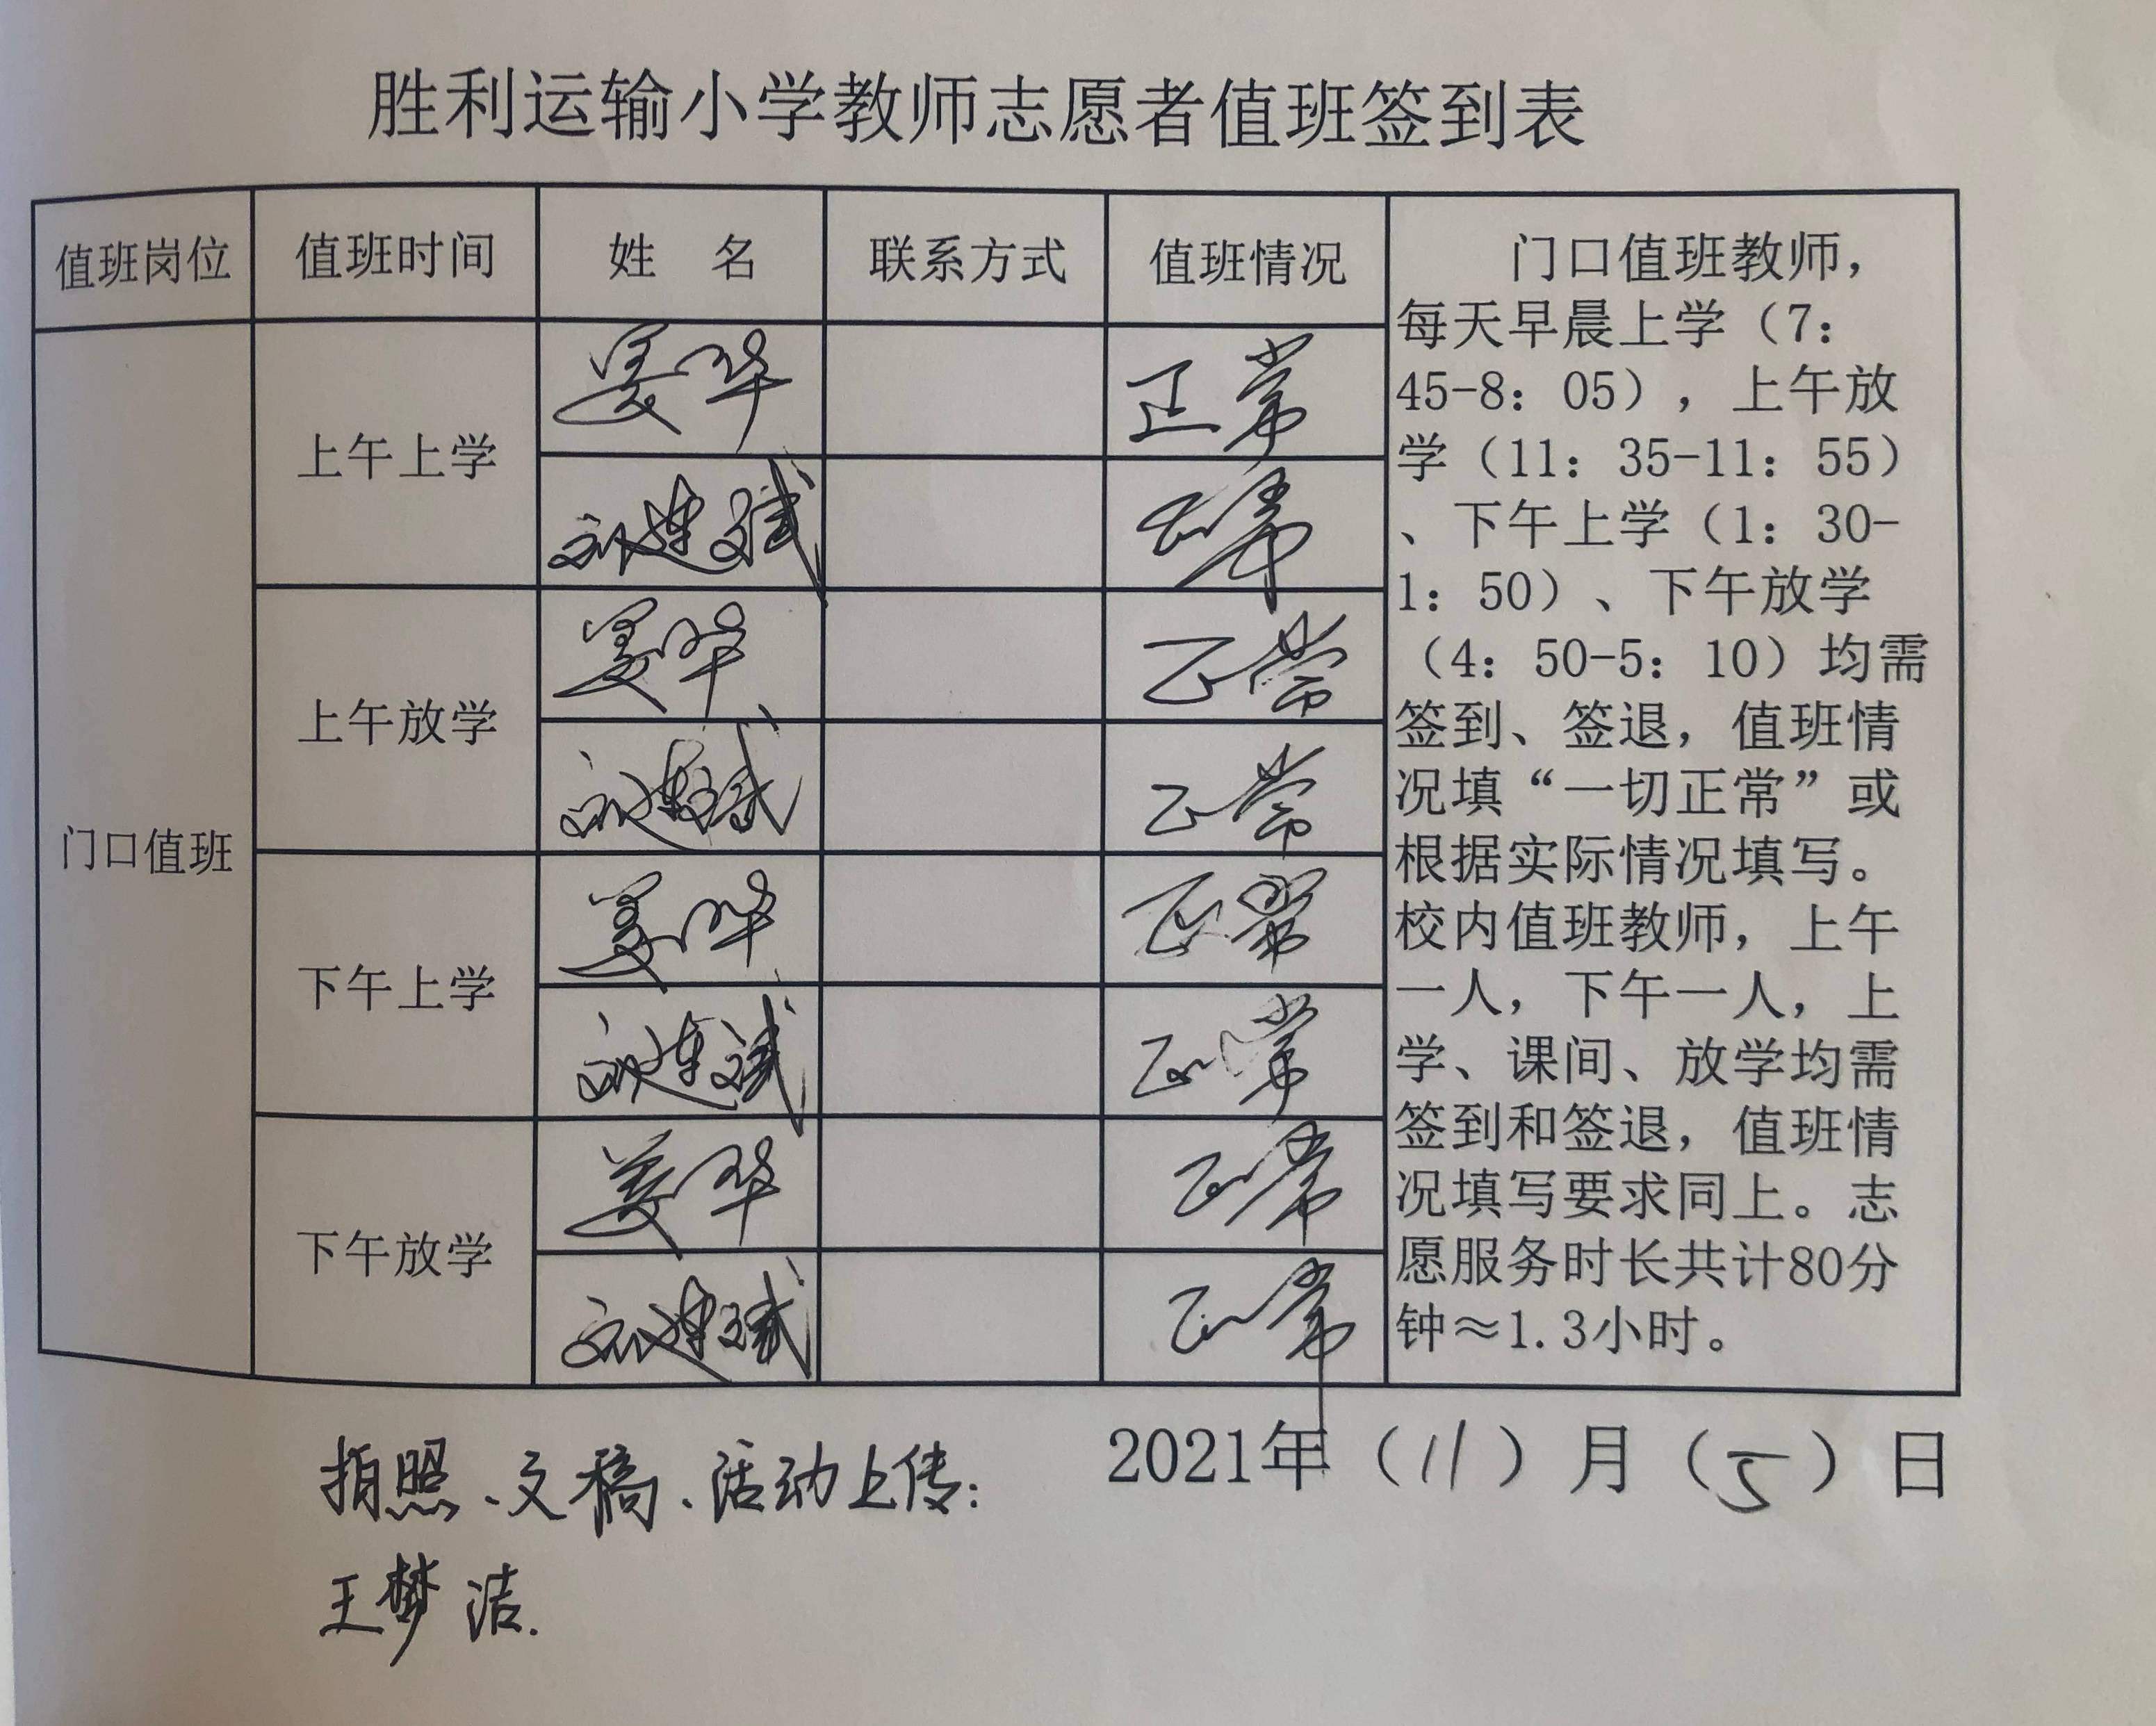 胜利运输小学教师志愿者值班签到表
值班岗位 值班时间 姓 名 联系方式 值班情况
门口值班
上午上学
姜华 正常
刘建斌 正常
上午放学
姜华 正常
刘建斌 正常
下午上学
姜华 正常
刘建斌 正常
下午放学
姜华 正常
刘建斌 正常
门口值班教师，
每天早晨上学（7：
45-8：05），上午放
学（11：35-11：55）
、下午上学（1：30-
1：50）、下午放学
（4：50-5：10）均需
签到、签退，值班情
况填“一切正常”或
根据实际情况填写。
校内值班教师，上午
一人，下午一人，上
学、课间、放学均需
签到和签退，值班情
况填写要求同上。志
愿服务时长共计80分
钟≈1.3小时。
2021年（11）月（5）日
拍照、文稿、活动上传：
王梦洁.